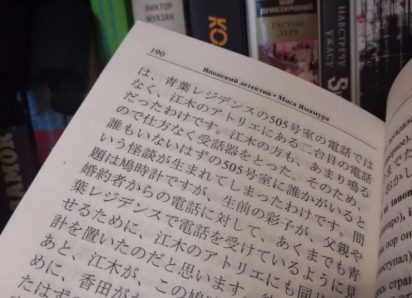 ВИКТОР
МИР ПРИКЛЮЧЕНИЙ
ГАСТОН ЛЕРУ
НАВСТРЕЧУ УЖАСУ
190
Японский детектив • Миса Ямамура
は、青葉レジデンスの505号室の電話では
なく、江木のアトリエにある二台目の電話
だったわけです。江木の方も、あまり鳴る
ので仕方なく受話器をとった。そのため、
誰もいないはずの505号室に誰かがいると
いう怪談が生まれてしまったわけです。問
題は鳩時計ですが、生前の彩子が、父親や
婚約者からの電話に対して、あくまでも青
葉レジデンスで電話を受けているように見
せるために、江木のアトリエにも同
計を置いたのだと思います。
あと、江木が、この鳩
めに、香田が
たはず